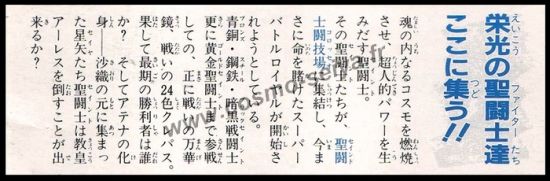 栄光の聖闘士達
ここに集う!!
魂の内なるコスモを燃焼
させ、超人的パワーを生
みだす聖闘士。
その聖闘士たちが、聖闘
士闘技場に集結し、今ま
さに命を賭けたスーパー
バトルロイヤルが開始さ
れようとしている。
青銅・鋼鉄・暗黒戦闘士
更に黄金聖闘士まで参戦
しての、正に戦いの万華
鏡、戦いの24色パルパス。
果して最期の勝利者は誰
か? そしてアテナの化
身——沙織の元に集まっ
た星矢たち聖闘士は教皇
アーレスを倒すことが出
来るか?
www.cosmo-seiya.fr